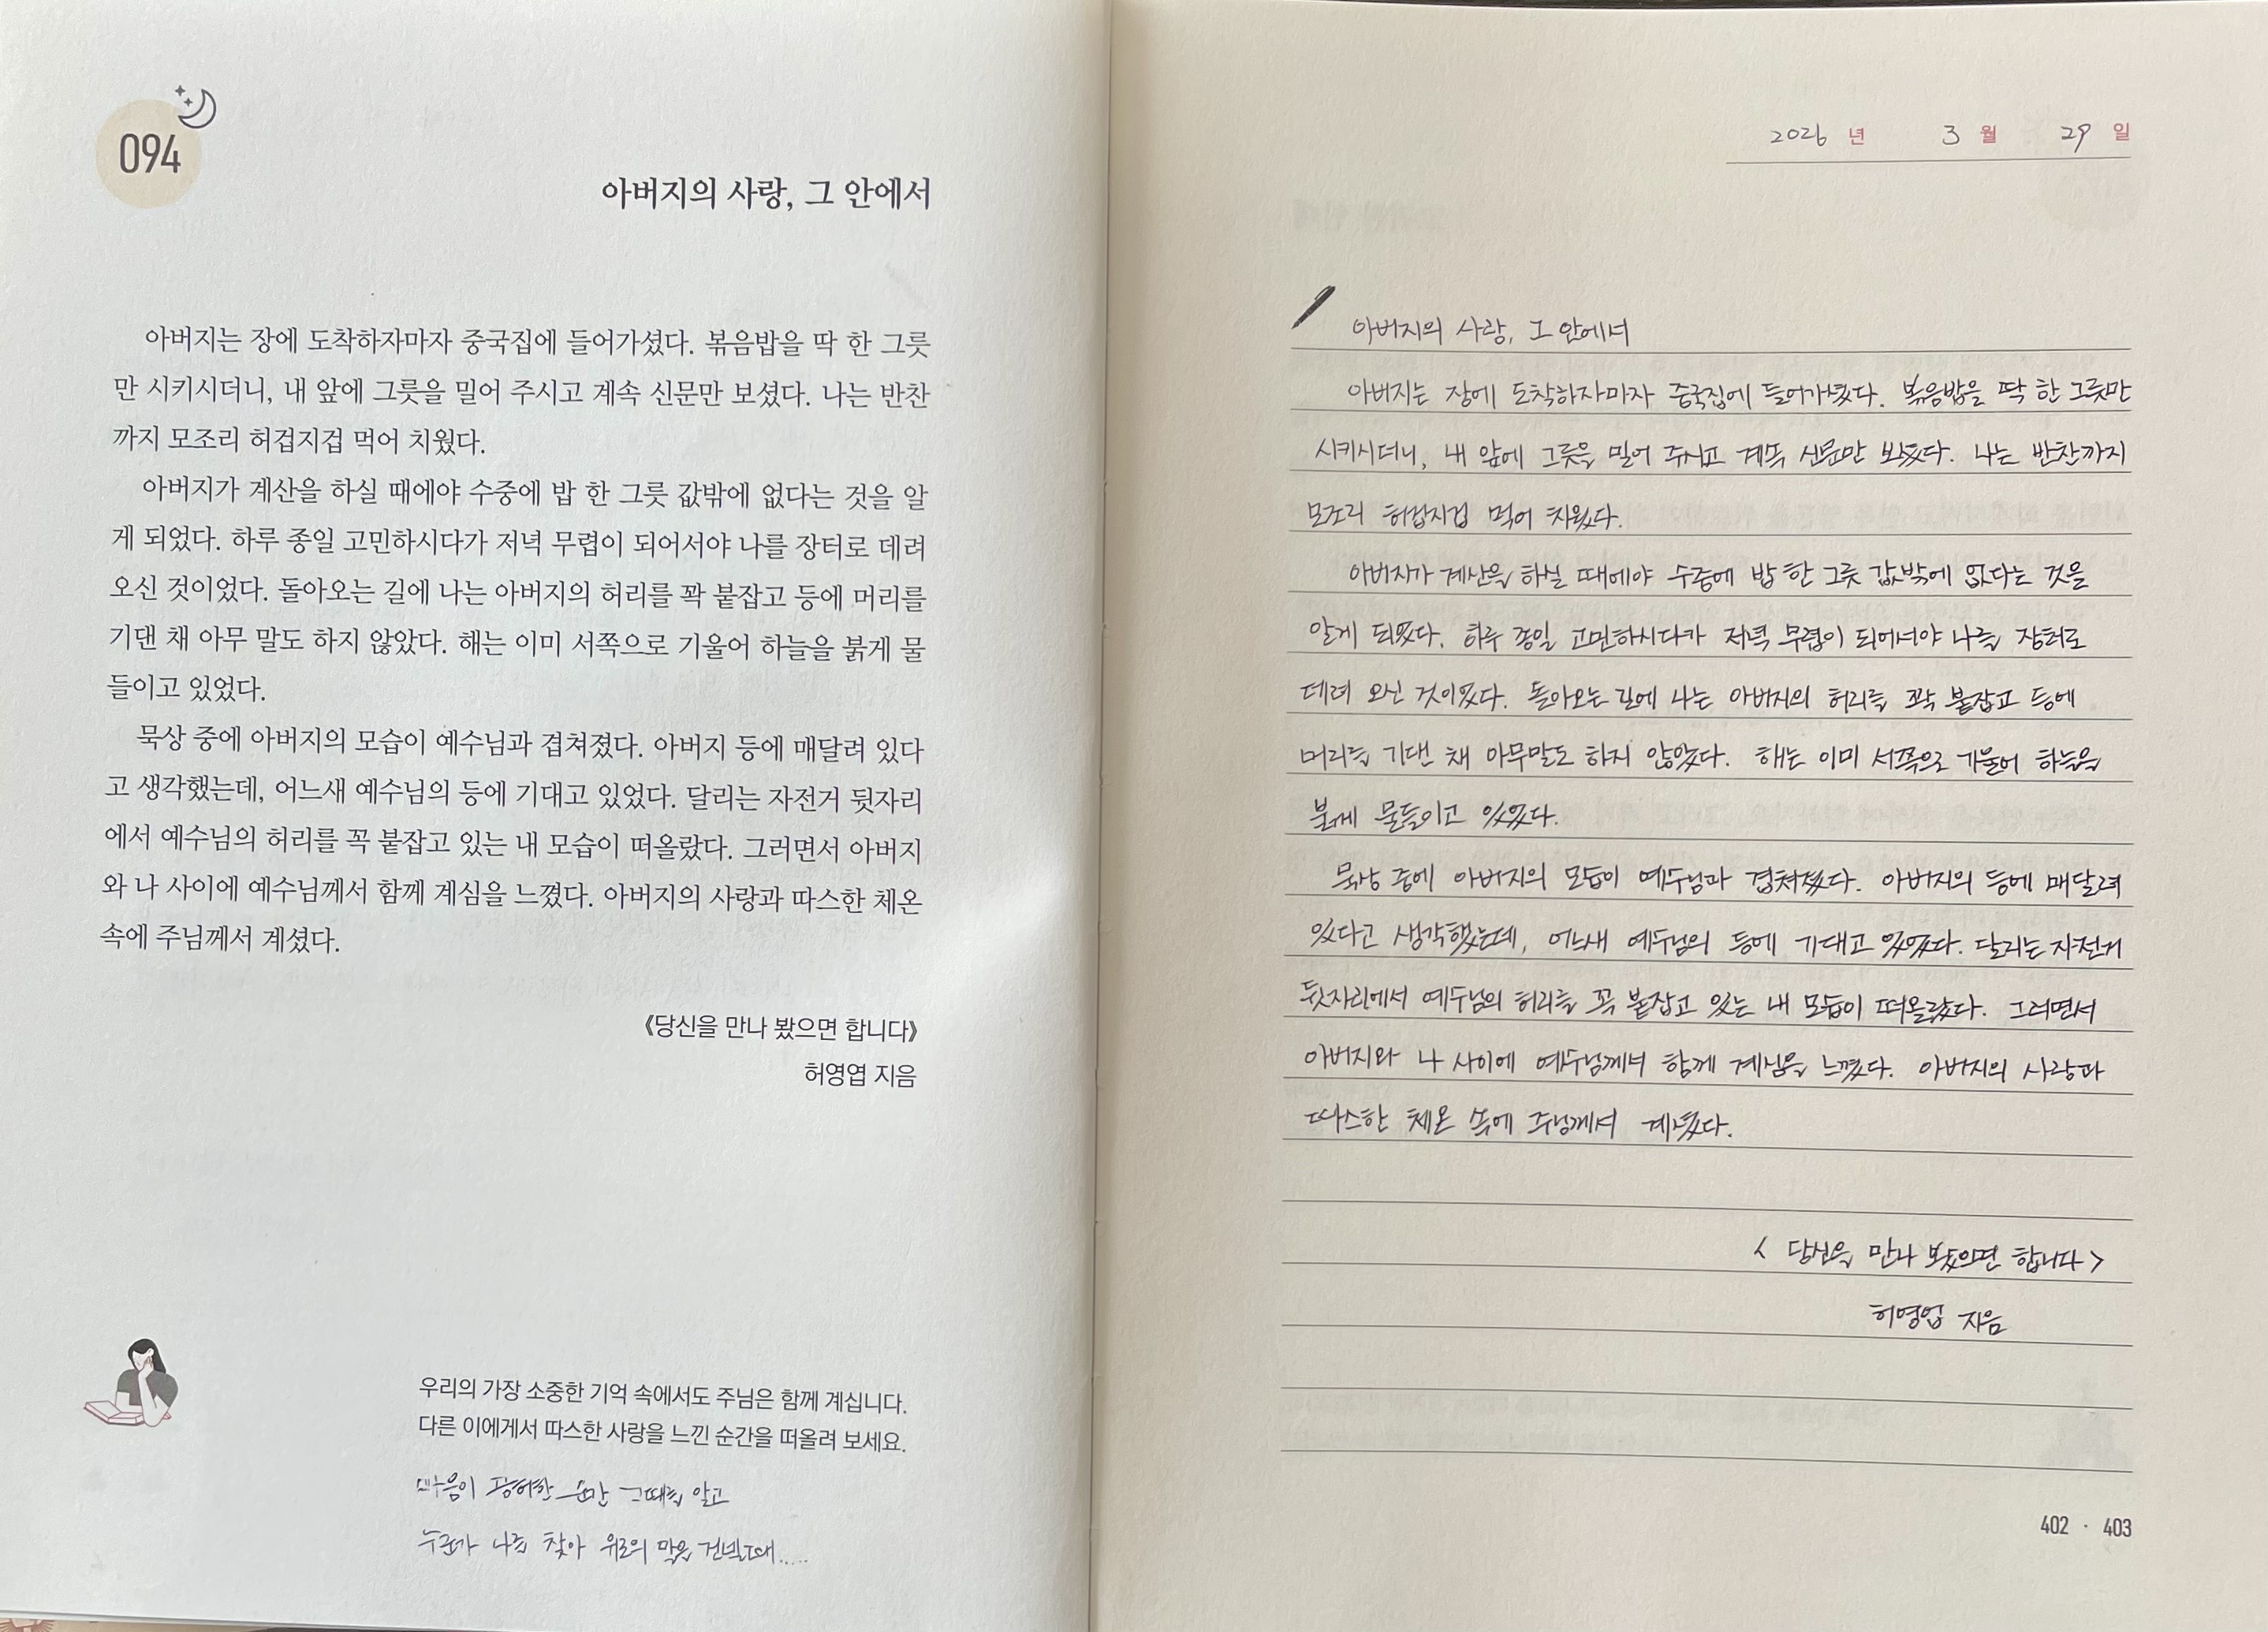 094
아버지의 사랑, 그 안에서
아버지는 장에 도착하자마자 중국집에 들어가셨다. 볶음밥을 딱 한 그릇
만 시키시더니, 내 앞에 그릇을 밀어 주시고 계속 신문만 보셨다. 나는 반찬
까지 모조리 허겁지겁 먹어 치웠다.
아버지가 계산을 하실 때에야 수중에 밥 한 그릇 값밖에 없다는 것을 알
게 되었다. 하루 종일 고민하시다가 저녁 무렵이 되어서야 나를 장터로 데려
오신 것이었다. 돌아오는 길에 나는 아버지의 허리를 꽉 붙잡고 등에 머리를
기댄 채 아무 말도 하지 않았다. 해는 이미 서쪽으로 기울어 하늘을 붉게 물
들이고 있었다.
묵상 중에 아버지의 모습이 예수님과 겹쳐졌다. 아버지 등에 매달려 있다
고 생각했는데, 어느새 예수님의 등에 기대고 있었다. 달리는 자전거 뒷자리
에서 예수님의 허리를 꼭 붙잡고 있는 내 모습이 떠올랐다. 그러면서 아버지
와 나 사이에 예수님께서 함께 계심을 느꼈다. 아버지의 사랑과 따스한 체온
속에 주님께서 계셨다.
《당신을 만나 봤으면 합니다》
허영엽 지음
우리의 가장 소중한 기억 속에서도 주님은 함께 계십니다.
다른 이에게서 따스한 사랑을 느낀 순간을 떠올려 보세요.
마음이 공허한 순간 그때를 알고
누군가 나를 찾아 위로의 말을 건넬때.....
2026 년 3 월 29 일
아버지의 사랑, 그 안에서
아버지는 장에 도착하자마자 중국집에 들어가셨다. 볶음밥을 딱 한 그릇만
시키시더니, 내 앞에 그릇을 밀어 주시고 계속 신문만 보셨다. 나는 반찬까지
모조리 허겁지겁 먹어 치웠다.
아버지가 계산을 하실 때에야 수중에 밥 한 그릇 값밖에 없다는 것을
알게 되었다. 하루 종일 고민하시다가 저녁 무렵이 되어서야 나를 장터로
데려 오신 것이었다. 돌아오는 길에 나는 아버지의 허리를 꽉 붙잡고 등에
머리를 기댄 채 아무말도 하지 않았다. 해는 이미 서쪽으로 기울어 하늘을
붉게 물들이고 있었다.
묵상 중에 아버지의 모습이 예수님과 겹쳐졌다. 아버지의 등에 매달려
있다고 생각했는데, 어느새 예수님의 등에 기대고 있었다. 달리는 자전거
뒷자리에서 예수님의 허리를 꼭 붙잡고 있는 내 모습이 떠올랐다. 그러면서
아버지와 나 사이에 예수님께서 함께 계심을 느꼈다. 아버지의 사랑과
따스한 체온 속에 주님께서 계셨다.
< 당신을 만나 봤으면 합니다 >
허영엽 지음
402 · 403